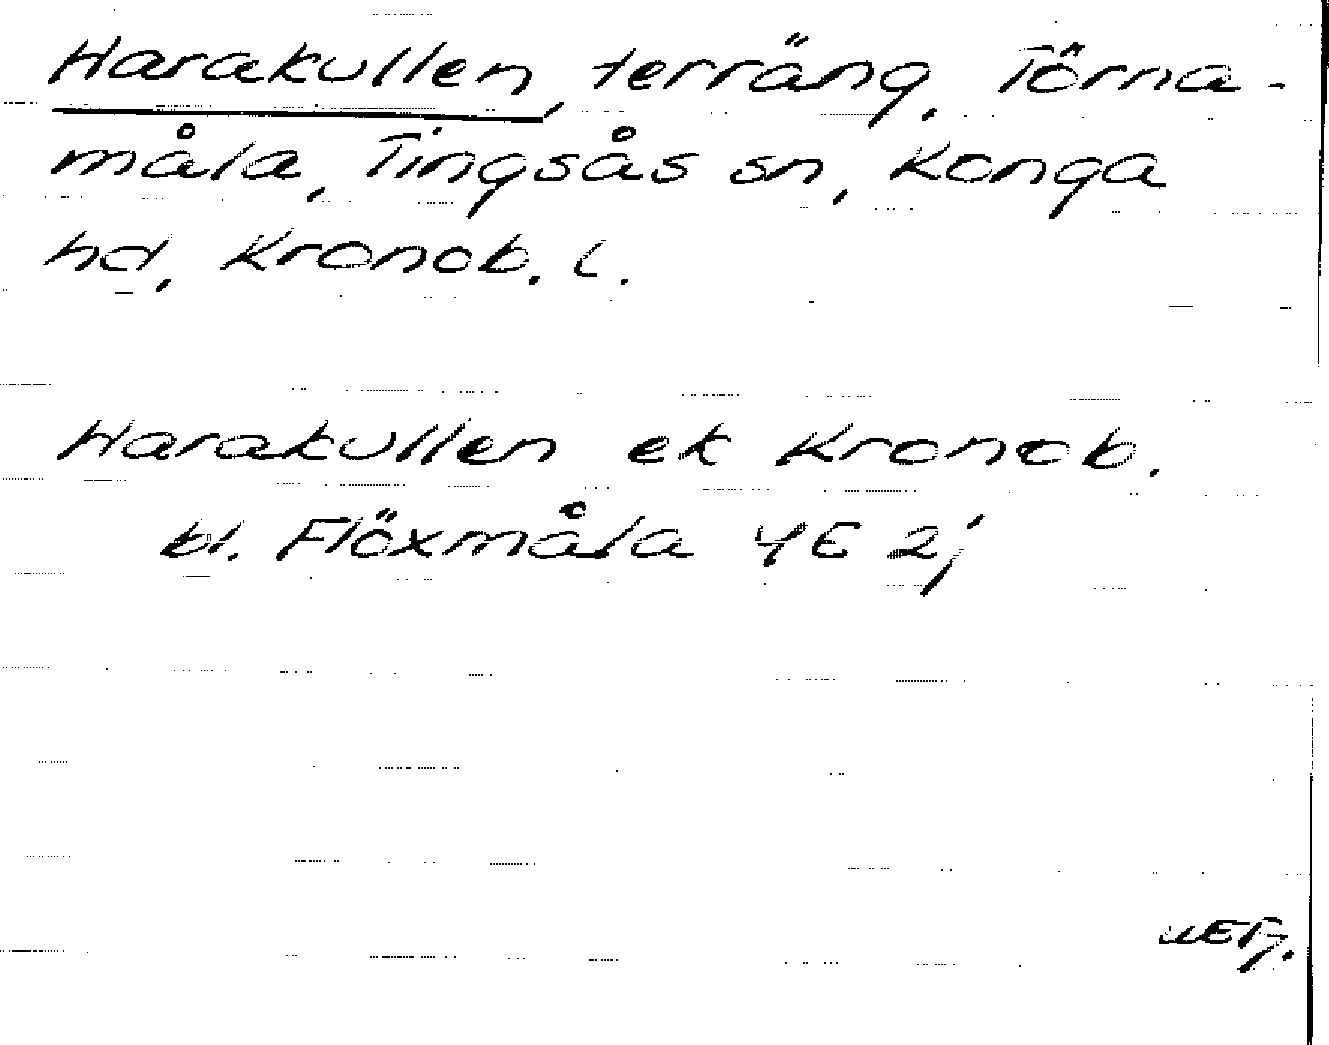 Harakullen, terräng, Törna-
måla, Tingsås sn, Konga
hd, Kronob. l.
Harakullen ek Kronob.
bl. Flöxmåla 4E 2j